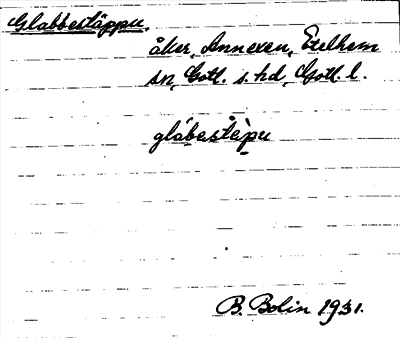 Glabbestäppu.
åker, Annexen, Etelhem
sn, Gotl. s. hd, Gotl. l.
glábestèpu
B. Bolin 1931.